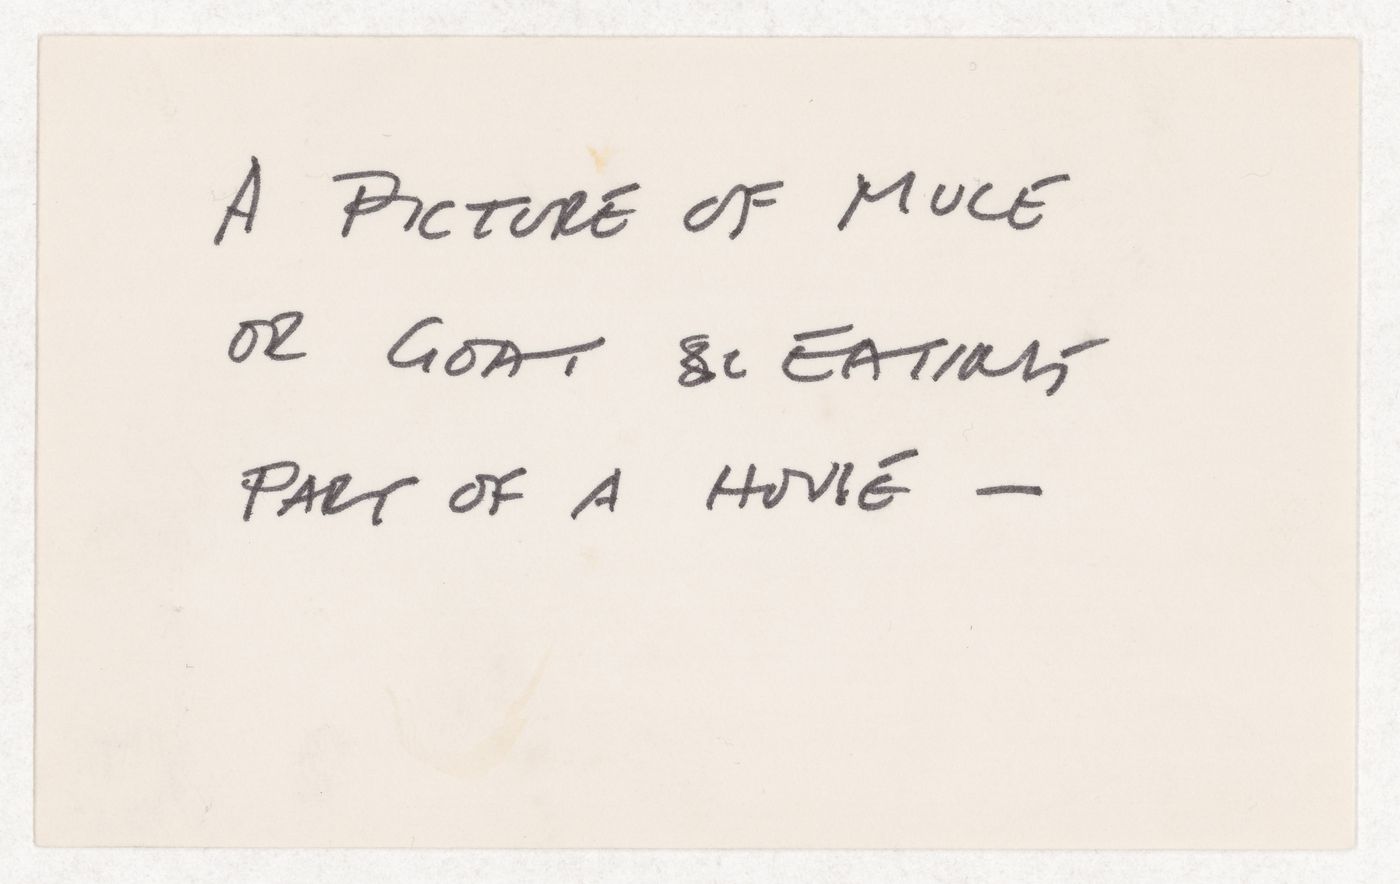 A PICTURE OF MULE
OR GOAT EATING
PART OF A HOUSE —